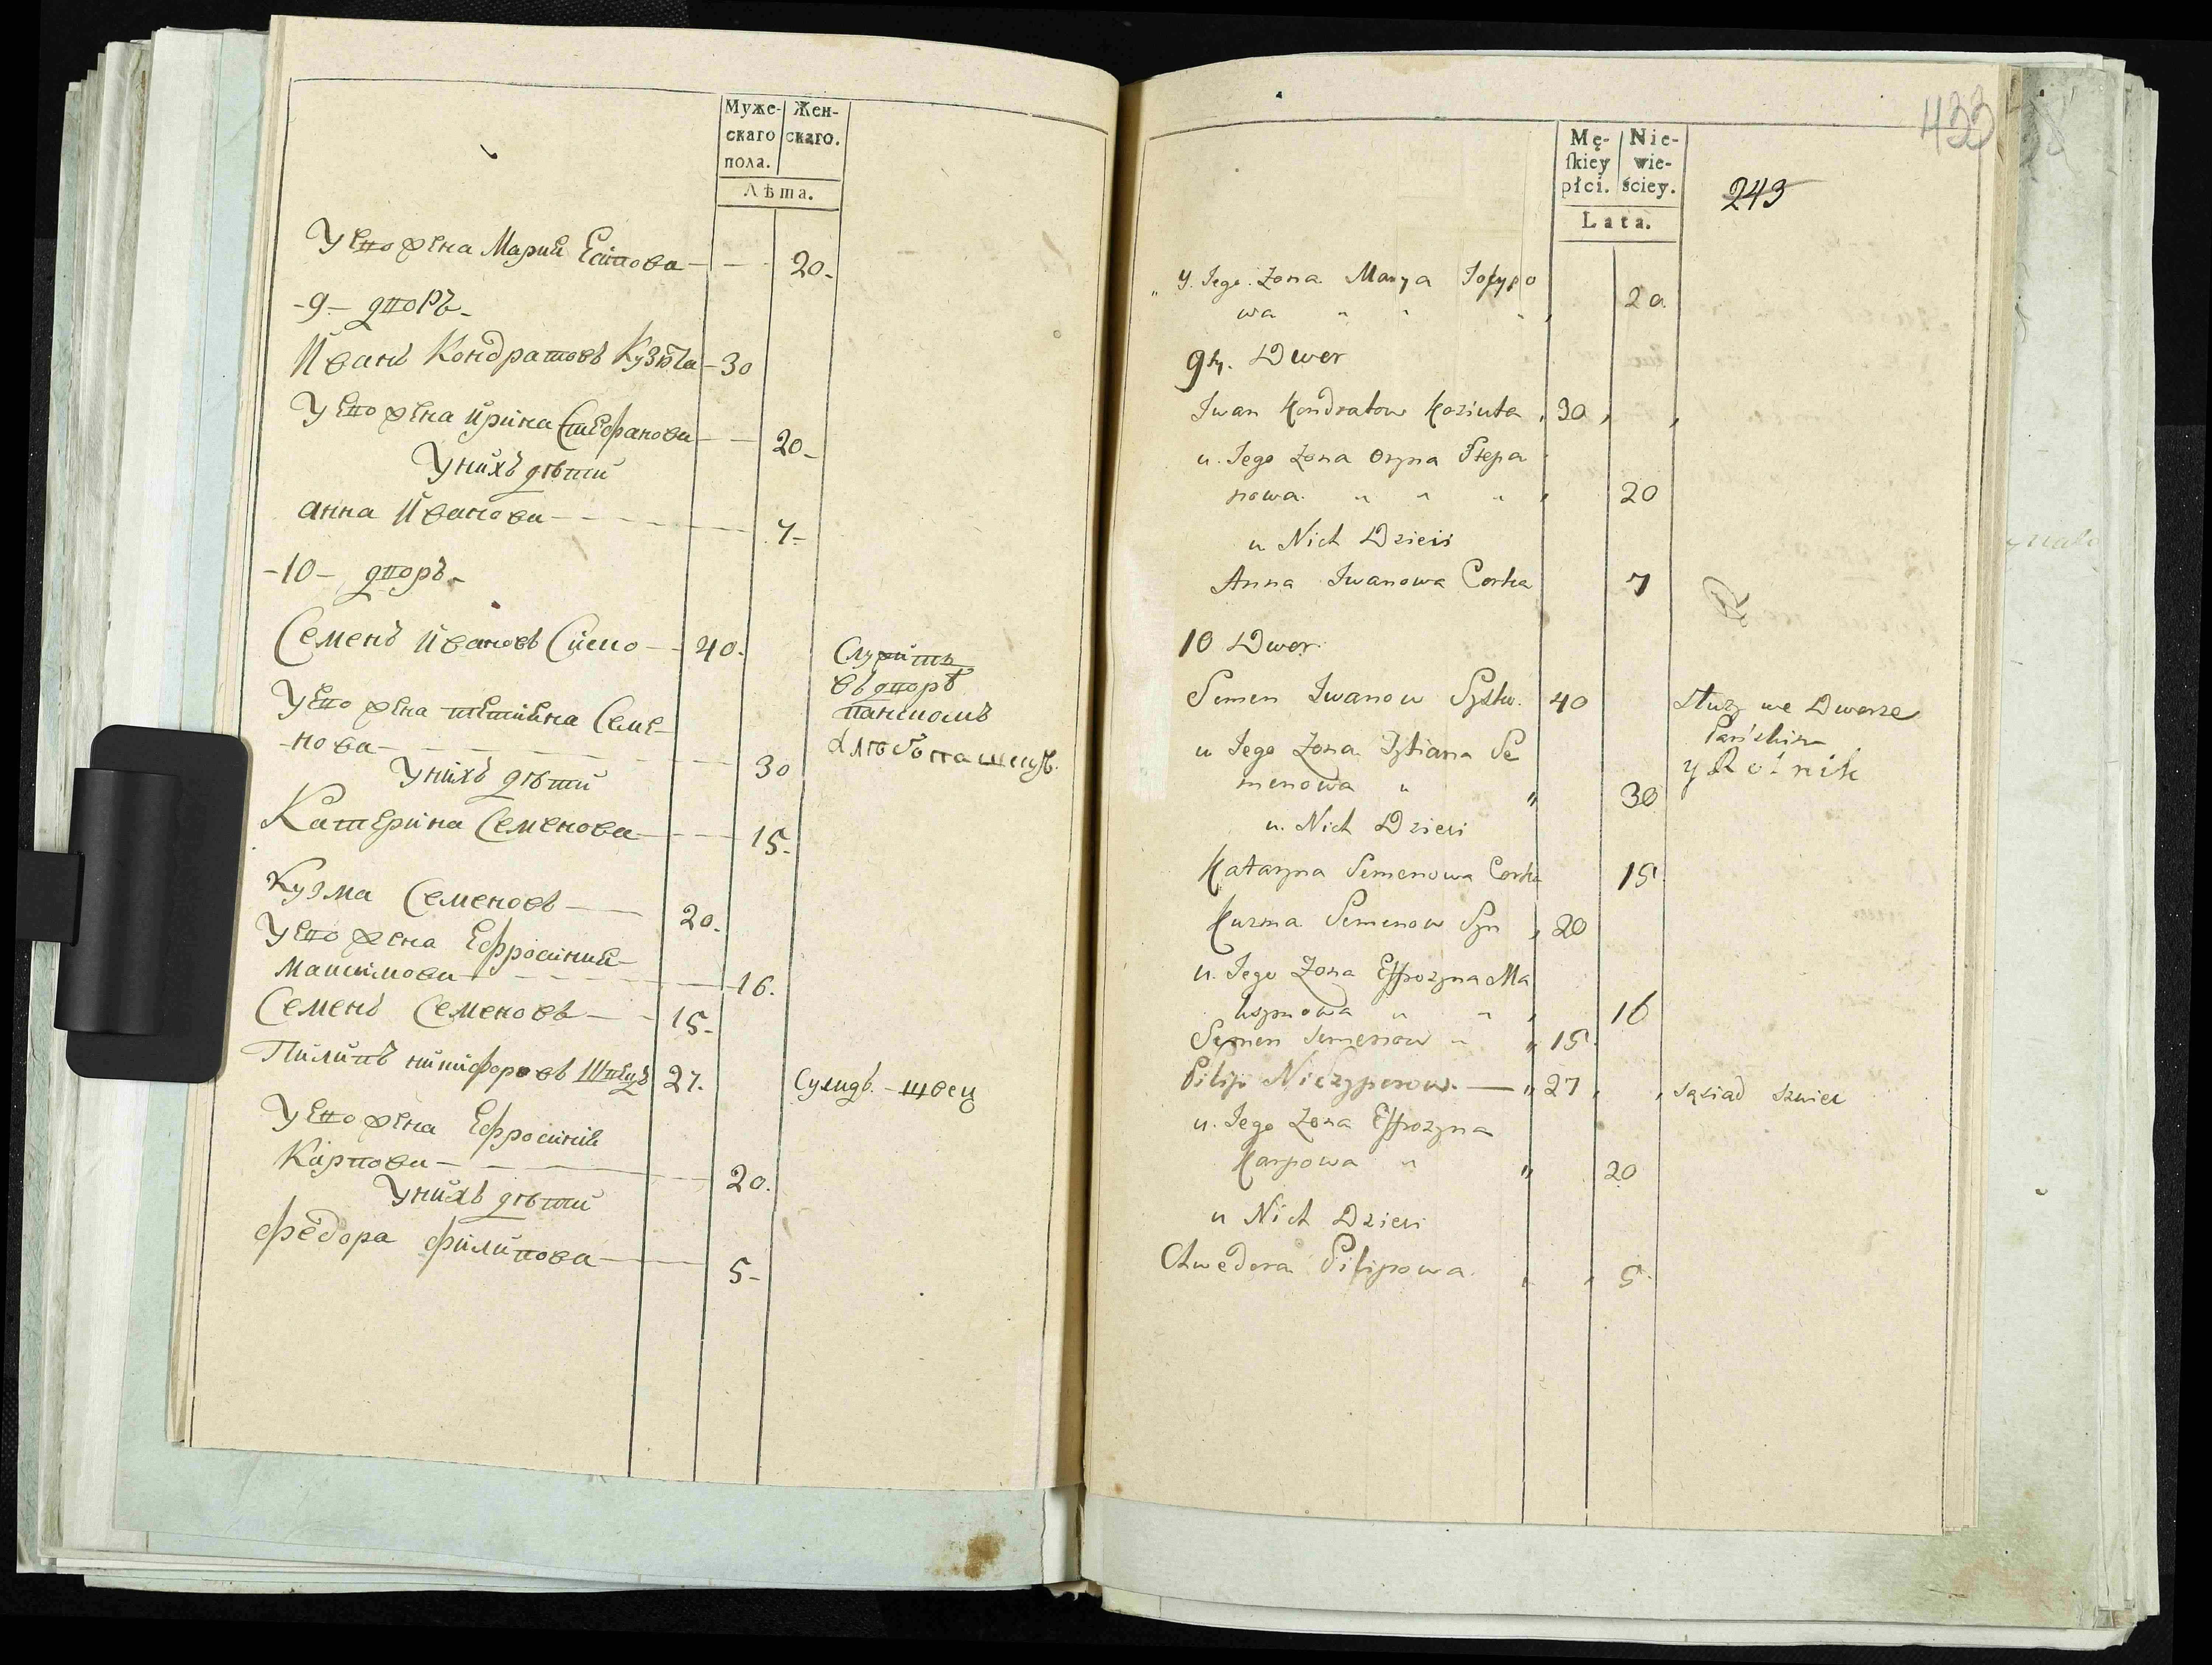 Муже-
скаго
пола.
Жен-
скаго.
Лѣта.
У ево жена Мария Есипова 20
9 дворъ
Иванъ Кондратовъ Кузюта 30
У ево жена Ирина Стефанова 20
У нихъ дѣти
Анна Иванова 7
10 дворъ
Семенъ Ивановъ 40
Служитъ
въ дворѣ
панскомъ
хлѣбопашецъ
У ево жена Тетиена Семе-
нова 30
У нихъ дѣти
Катерина Семенова 15
Кузма Семеновъ 20
У ево жена Ефросиния
Максимова 16
Семенъ Семеновъ 15
Пилипъ Никифоровъ Швецъ 27
Сусидъ - швец
У ево жена Ефросиния
Карпова 20
У нихъ дѣти
Федора Филипова 5
433
243
Mę-
skiey
płci.
Nie-
wie-
ściey.
Lata.
u Jego Zona Marya Jozypo
wa 20
9ty. Dwor
Iwan Kondratow Koziuta 30
u Jego Zona Oryna Stepa
nowa 20
u Nich Dzieci
Anna Iwanowa Corka 7
10 Dwor
Semen Iwanow 40
Służy we Dworze
Pańskim
y Rolnik
u Jego Zona Tytiana Se
menowa 30
u Nich Dzieci
Kataryna Semenowa Corka 15
Kuzma Semenow Syn 20
u Jego Zona Effrozyna Ma
ksymowa 16
Semen Semenow 15
Pilip Niczyperow 27
sąsiad szwiec
u Jego Zona Effrozyna
Karpowa 20
u Nich Dzieci
Chwedora Pilipowa 5